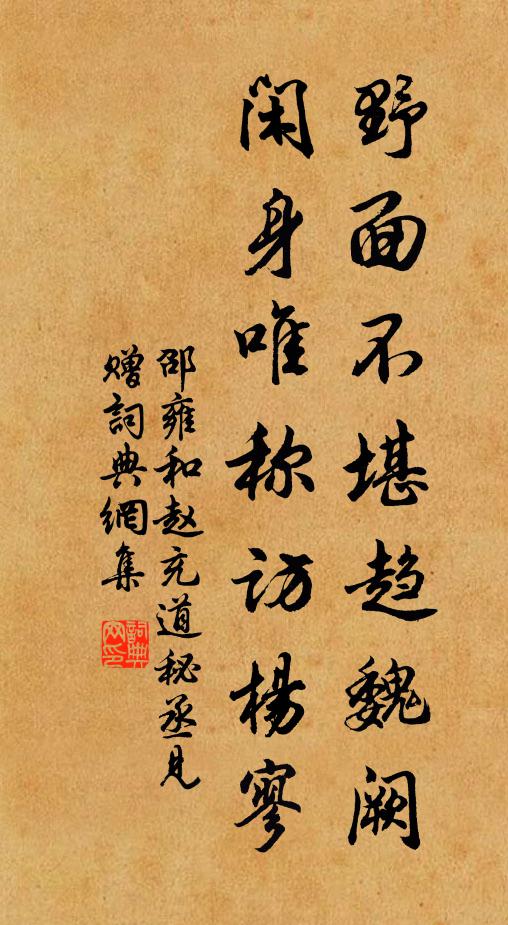 野面不堪趋魏阙
闲身唯称访杨寥
邵雍和赵充道秘丞见
赠詞典網集
詞典
网印